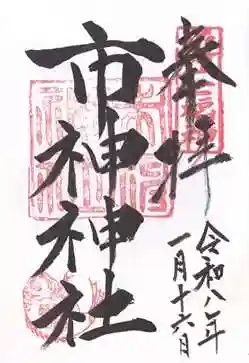 奉拝
市神神社
令和八年
一月十六日